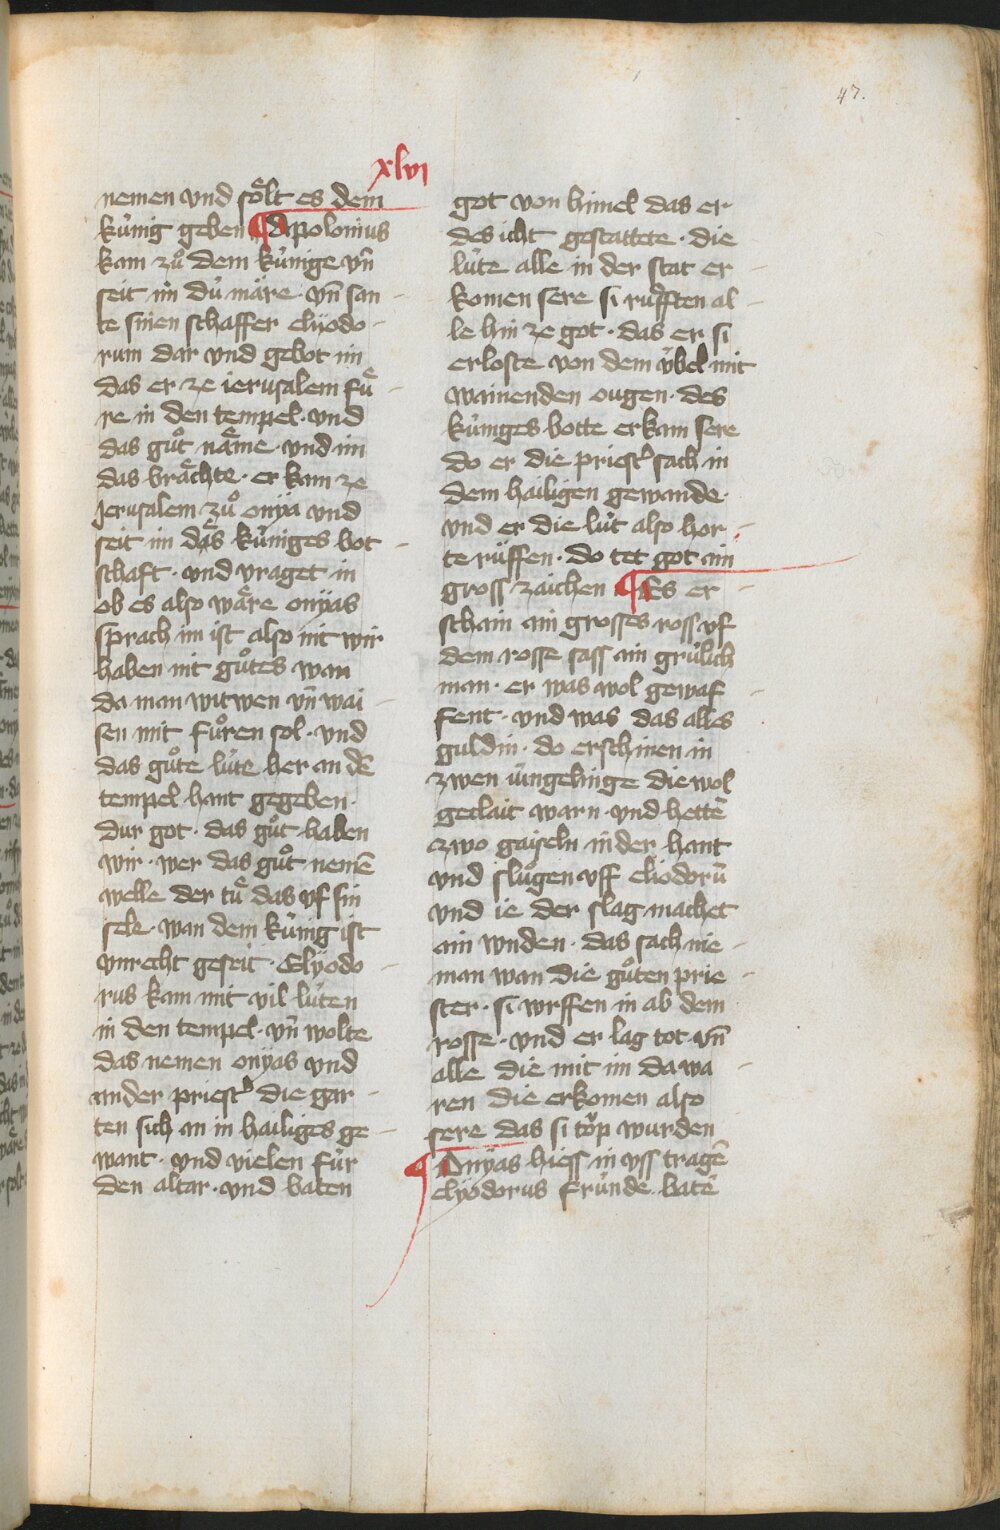 47.
xlvi
nemen vnd soͤlt es dem
kuͤnig geben ¶ Apolonius
kam zuͦ dem kuͤnige vn̄
seit im duͤ maͤre · vn̄ san
te sinen schaffer elyodo
rum dar vnd gebot im
das er ze ierusalem fuͤ
re in den tempel · vnd
das guͦt naͤme · vnd im
das braͤchte · er kam ze
Jerusalem zuͦ onyia vnd
seit im daͤs kuͤniges bot
schaft · vnd vraget in
ob es also waͤre onyas
sprach im ist also nit wir
haben nit guͦtes wan
da man witwen vn̄ wai
sen mit fuͦren sol · vnd
das guͦte luͤte her an dē
tempel hant gegeben ·
dur got · das guͦt haben
wir · wer das guͦt nemē
welle der tuͤ das vf sin
sele · wan dem kuͤnig ist
vnrecht geseit · Elyodo
rus kam mit vil luͤten
in den tempel · vn̄ wolte
das nemen onyas vnd
ander priest͛ die gar
ten sich an in hailiges ge
want · vnd vielen fuͤr
den altar · vnd baten
got von himel das er
des icht gestattete · die
luͤte alle in der stat er
komen sere si ruͤfften al
le hin ze got · das er si
erloste von dem vͤbel mit
wainenden ougen · des
kuͤniges botte erkam sere
do er die priest͛ sach in
dem hailigen gewande ·
vnd er die luͤt also hor
te ruͤffen · do tet got ain
gross zaichen ¶ Es er
schain ain grosses ross vf
dem rosse sass ain gruͤlich
man · er was wol gewaf
fent · vnd was das alles
guldin · do erschinen in
zwen iuͤngelinge die wol
geclait warn · vnd hettē
zwo gaiseln in der hant
vnd sluͦgen vff eliodorū
vnd ie der slag machet
ain wnden · das sach nie
man wan die guͦten prie
ster · si wrffen in ab dem
rosse · vnd er lag tot · vn̄
alle die mit im da wa
ren die erkomen also
sere das si toͤp wurden
¶ Onyas hiess in vss tragē
elyodorus fruͤnde batē